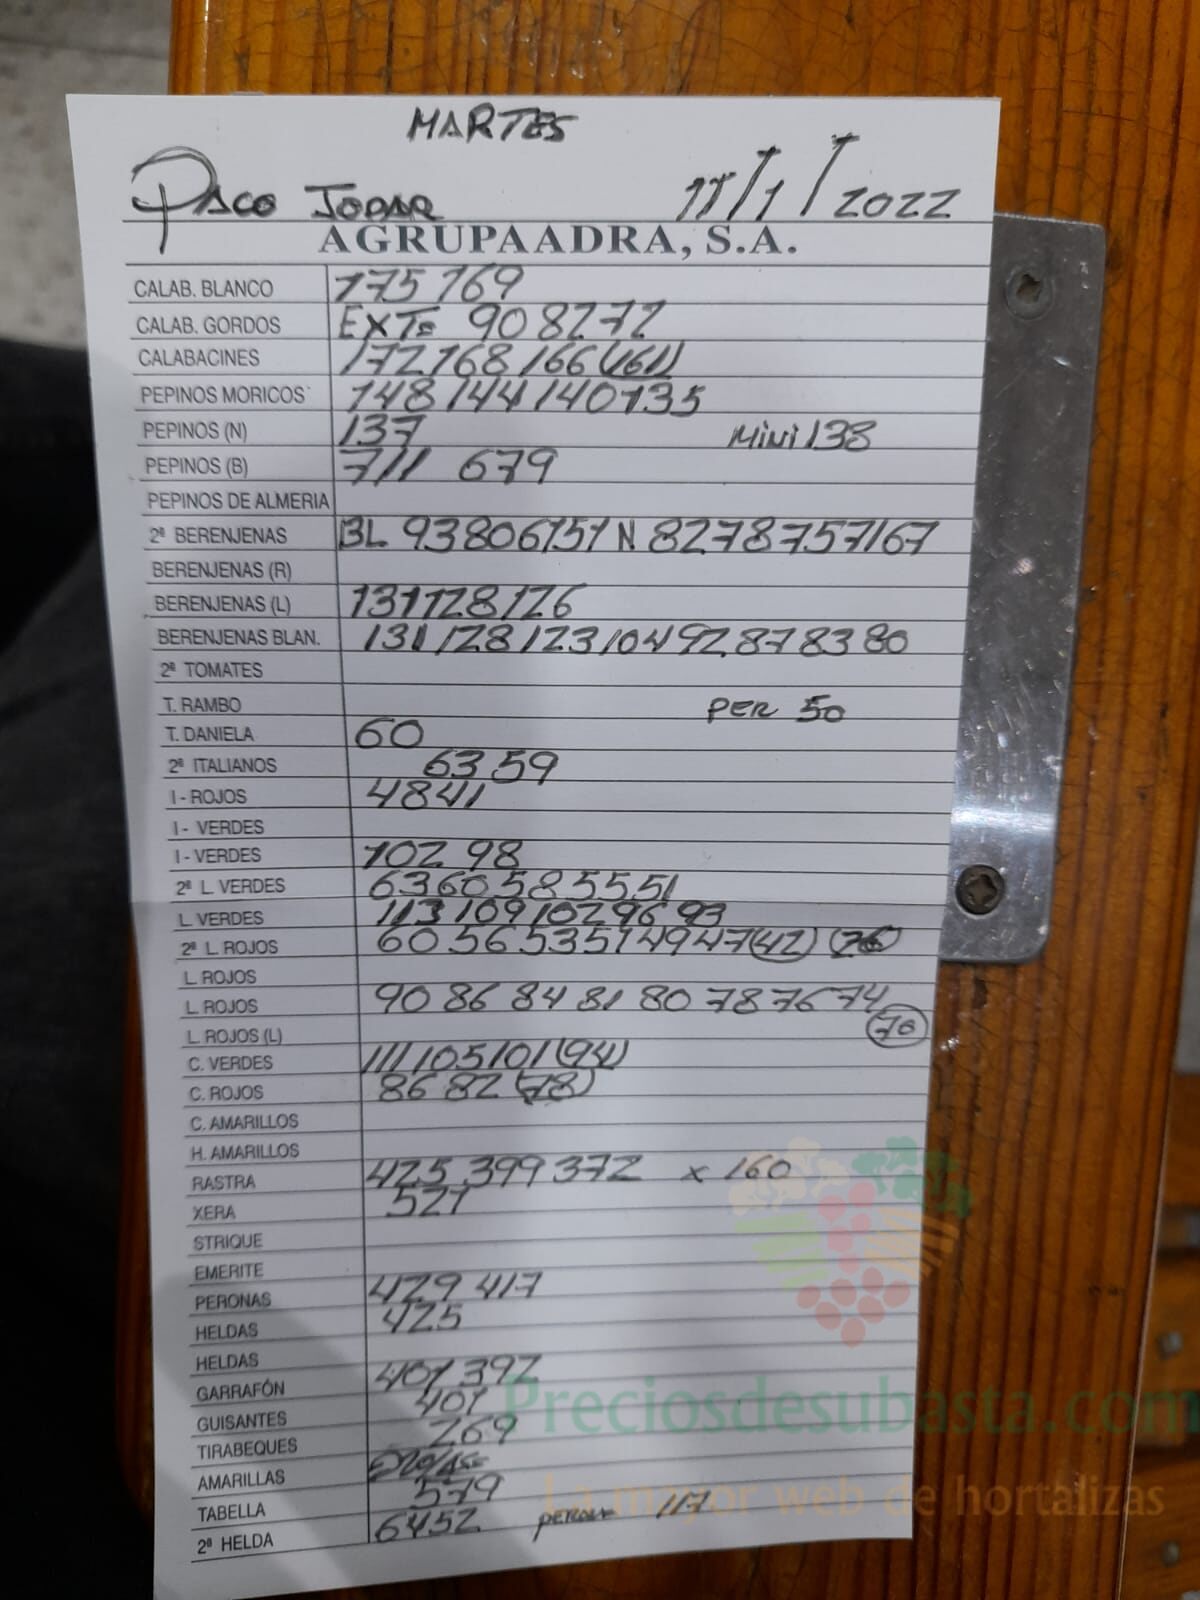 MARTES
PACO JODAR 11/1/2022
AGRUPAADRA, S.A.
CALAB. BLANCO 175 169
CALAB. GORDOS EXT= 90 82 72
CALABACINES 172 168 166 (161)
PEPINOS MORICOS 148 144 140 135
PEPINOS (N) 137 MiNi 138
PEPINOS (B) 711 679
PEPINOS DE ALMERIA
2ª BERENJENAS BL 93 80 61 51 N 82 78 75 71 67
BERENJENAS (R)
BERENJENAS (L) 131 128 126
BERENJENAS BLAN. 131 128 123 104 92 87 83 80
2ª TOMATES
T. RAMBO PER 50
T. DANIELA 60
2ª ITALIANOS 63 59
I - ROJOS 48 41
I - VERDES
I - VERDES 102 98
2ª L. VERDES 63 60 58 55 51
L. VERDES 113 109 102 96 93
2ª L. ROJOS 60 56 53 51 49 47 (42)
L. ROJOS
L. ROJOS 90 86 84 81 80 78 76 74
(70)
L. ROJOS (L)
C. VERDES 111 105 101 (94)
C. ROJOS 86 82 (78)
C. AMARILLOS
H. AMARILLOS
RASTRA 425 399 372 x 160
XERA 521
STRIQUE
EMERITE
PERONAS 429 417
HELDAS 425
HELDAS
GARRAFÓN 401 392
GUISANTES 401
TIRABEQUES 269
AMARILLAS
TABELLA 579
2ª HELDA 64 52 117
Preciosdesubasta.com
La mayor web de hortalizas